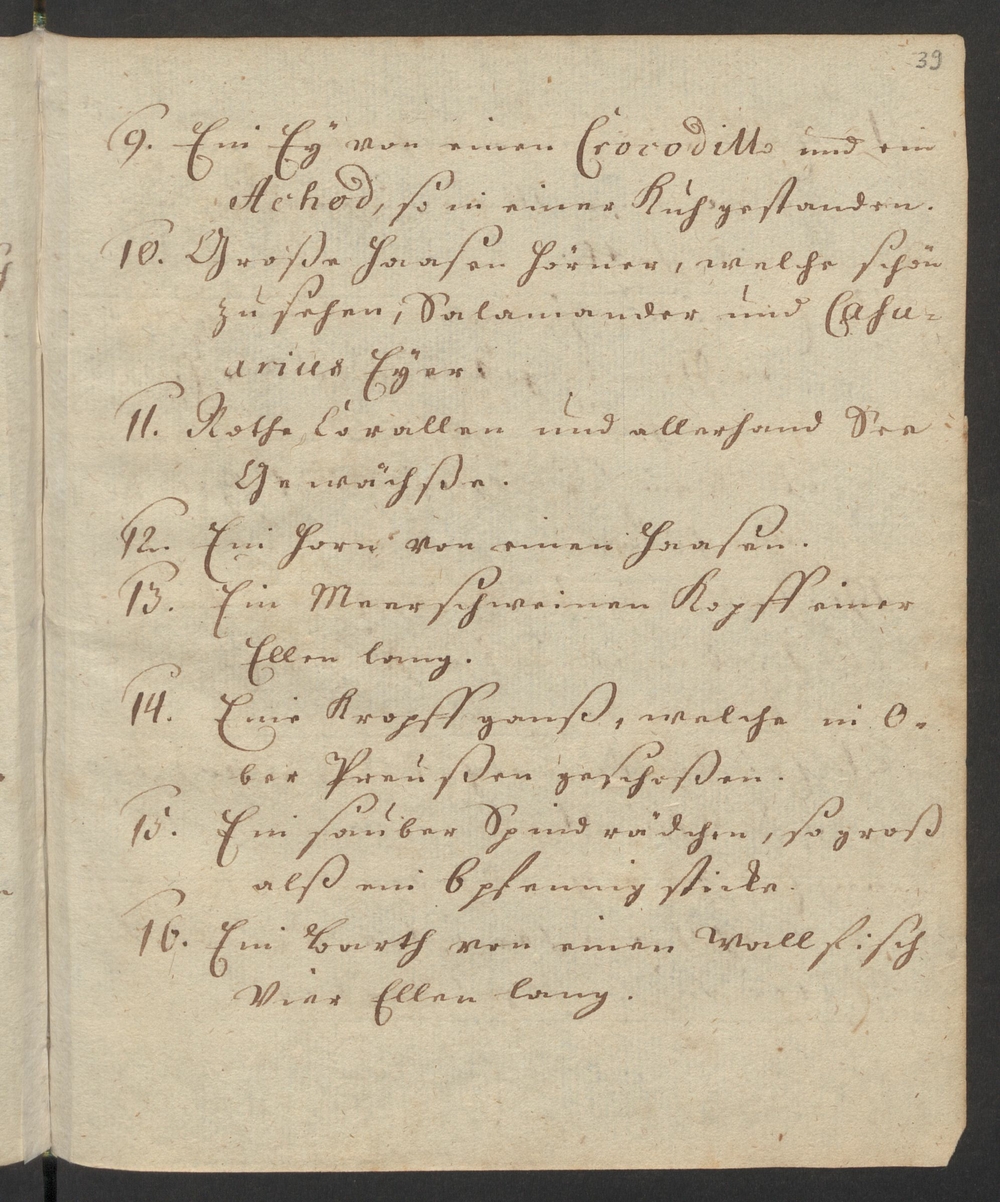 39
9. Ein Eÿ von einen Crocodill und ein
Achod, so in einer Kuh gestanden.
10. Große Haasen Hörner, welche schön
zu sehen, Salamander und Casu-
arius Eÿer.
11. Rothe Corallen und allerhand See
Gewächße.
12. Ein Horn von einen Haasen.
13. Ein Meerschweinen Kopff einer
Ellen lang.
14. Eine Kropff ganß, welche in O-
ber Preußen geschoßen.
15. Ein sauber Spindrädchen, so groß
alß ein 6 pfennig sticke.
16. Ein Barth von einen Wallfisch
Vier Ellen lang.